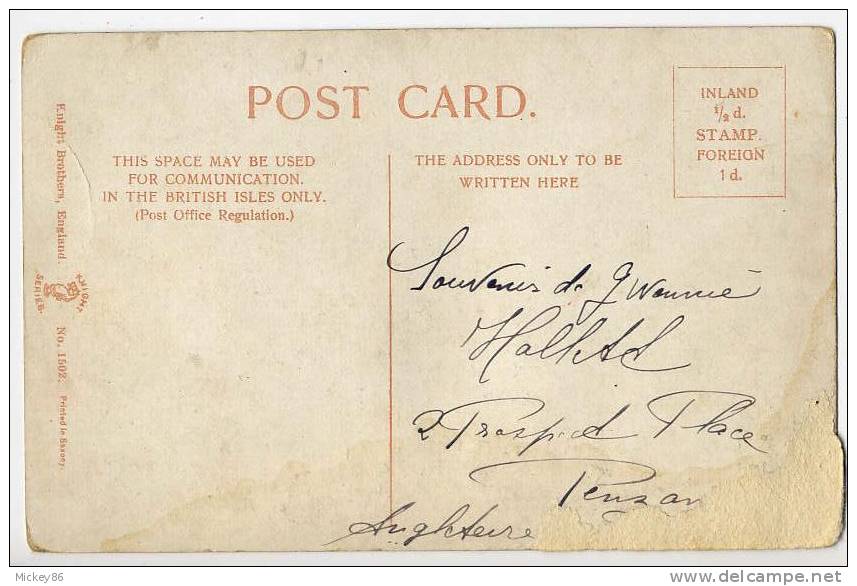 POST CARD.
INLAND
1/2 d.
STAMP.
FOREIGN
1 d.
THIS SPACE MAY BE USED
FOR COMMUNICATION.
IN THE BRITISH ISLES ONLY.
(Post Office Regulation.)
THE ADDRESS ONLY TO BE
WRITTEN HERE
Knight Brothers, England.
KNIGHT
SERIES
No. 1502.
Printed in Saxony.
Souvenir de
2 Prospect Place
Penzan
Angleterre
Mickey86
delcampe.net